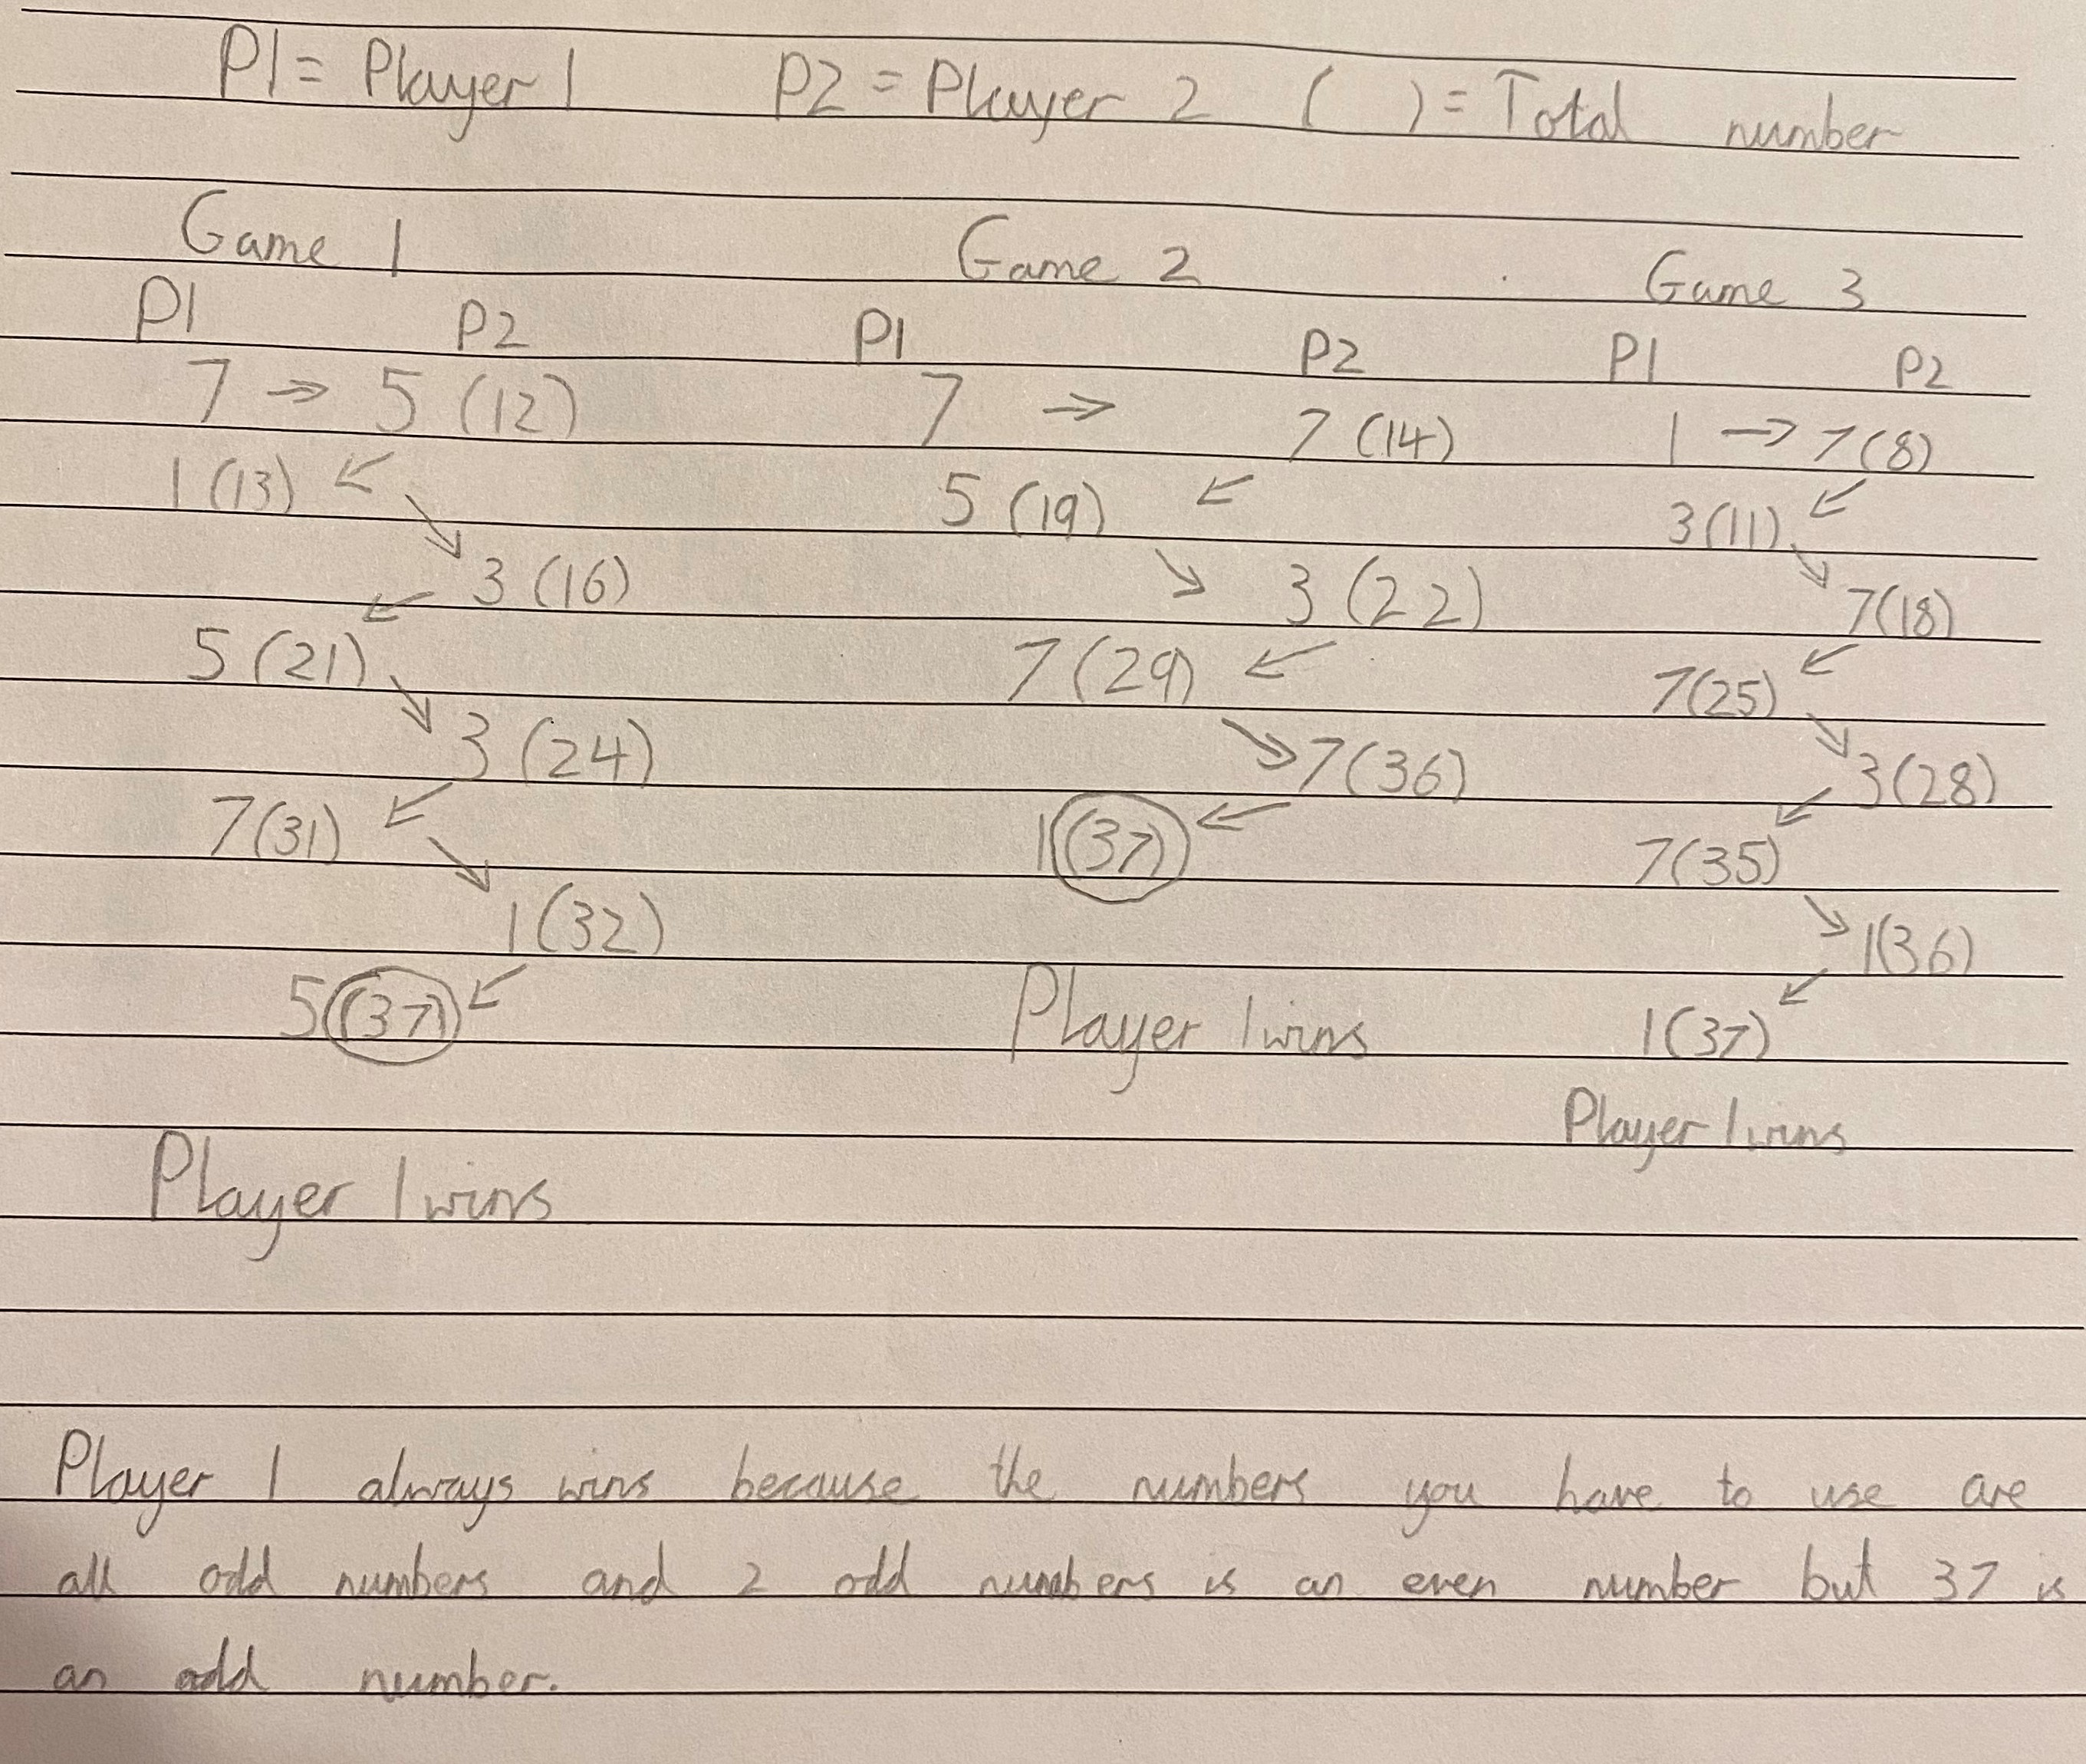 P1 = Player 1 P2 = Player 2 ( ) = Total number
Game 1 Game 2 Game 3
P1 P2 P1 P2 P1 P2
7 → 5 (12) 7 → 7 (14) 1 → 7 (8)
1 (13) ↙ 5 (19) ↙ 3 (11) ↙
↘ 3 (16) ↘ 3 (22) ↘ 7 (18)
5 (21) ↙ 7 (29) ↙ 7 (25) ↙
↘ 3 (24) ↘ 7 (36) ↘ 3 (28)
7 (31) ↙ 1 (37) ↙ 7 (35) ↙
↘ 1 (32) ↘ 1 (36)
5 (37) ↙ Player 1 wins 1 (37) ↙
Player 1 wins Player 1 wins
Player 1 always wins because the numbers you have to use are
all odd numbers and 2 odd numbers is an even number but 37 is
an odd number.